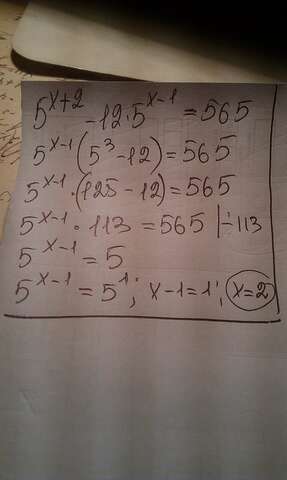 5^{x+2} - 12·5^{x-1} = 565
5^{x-1}(5^3 - 12) = 565
5^{x-1}·(125 - 12) = 565
5^{x-1} · 113 = 565 |÷113
5^{x-1} = 5
5^{x-1} = 5^1; x-1=1; x=2